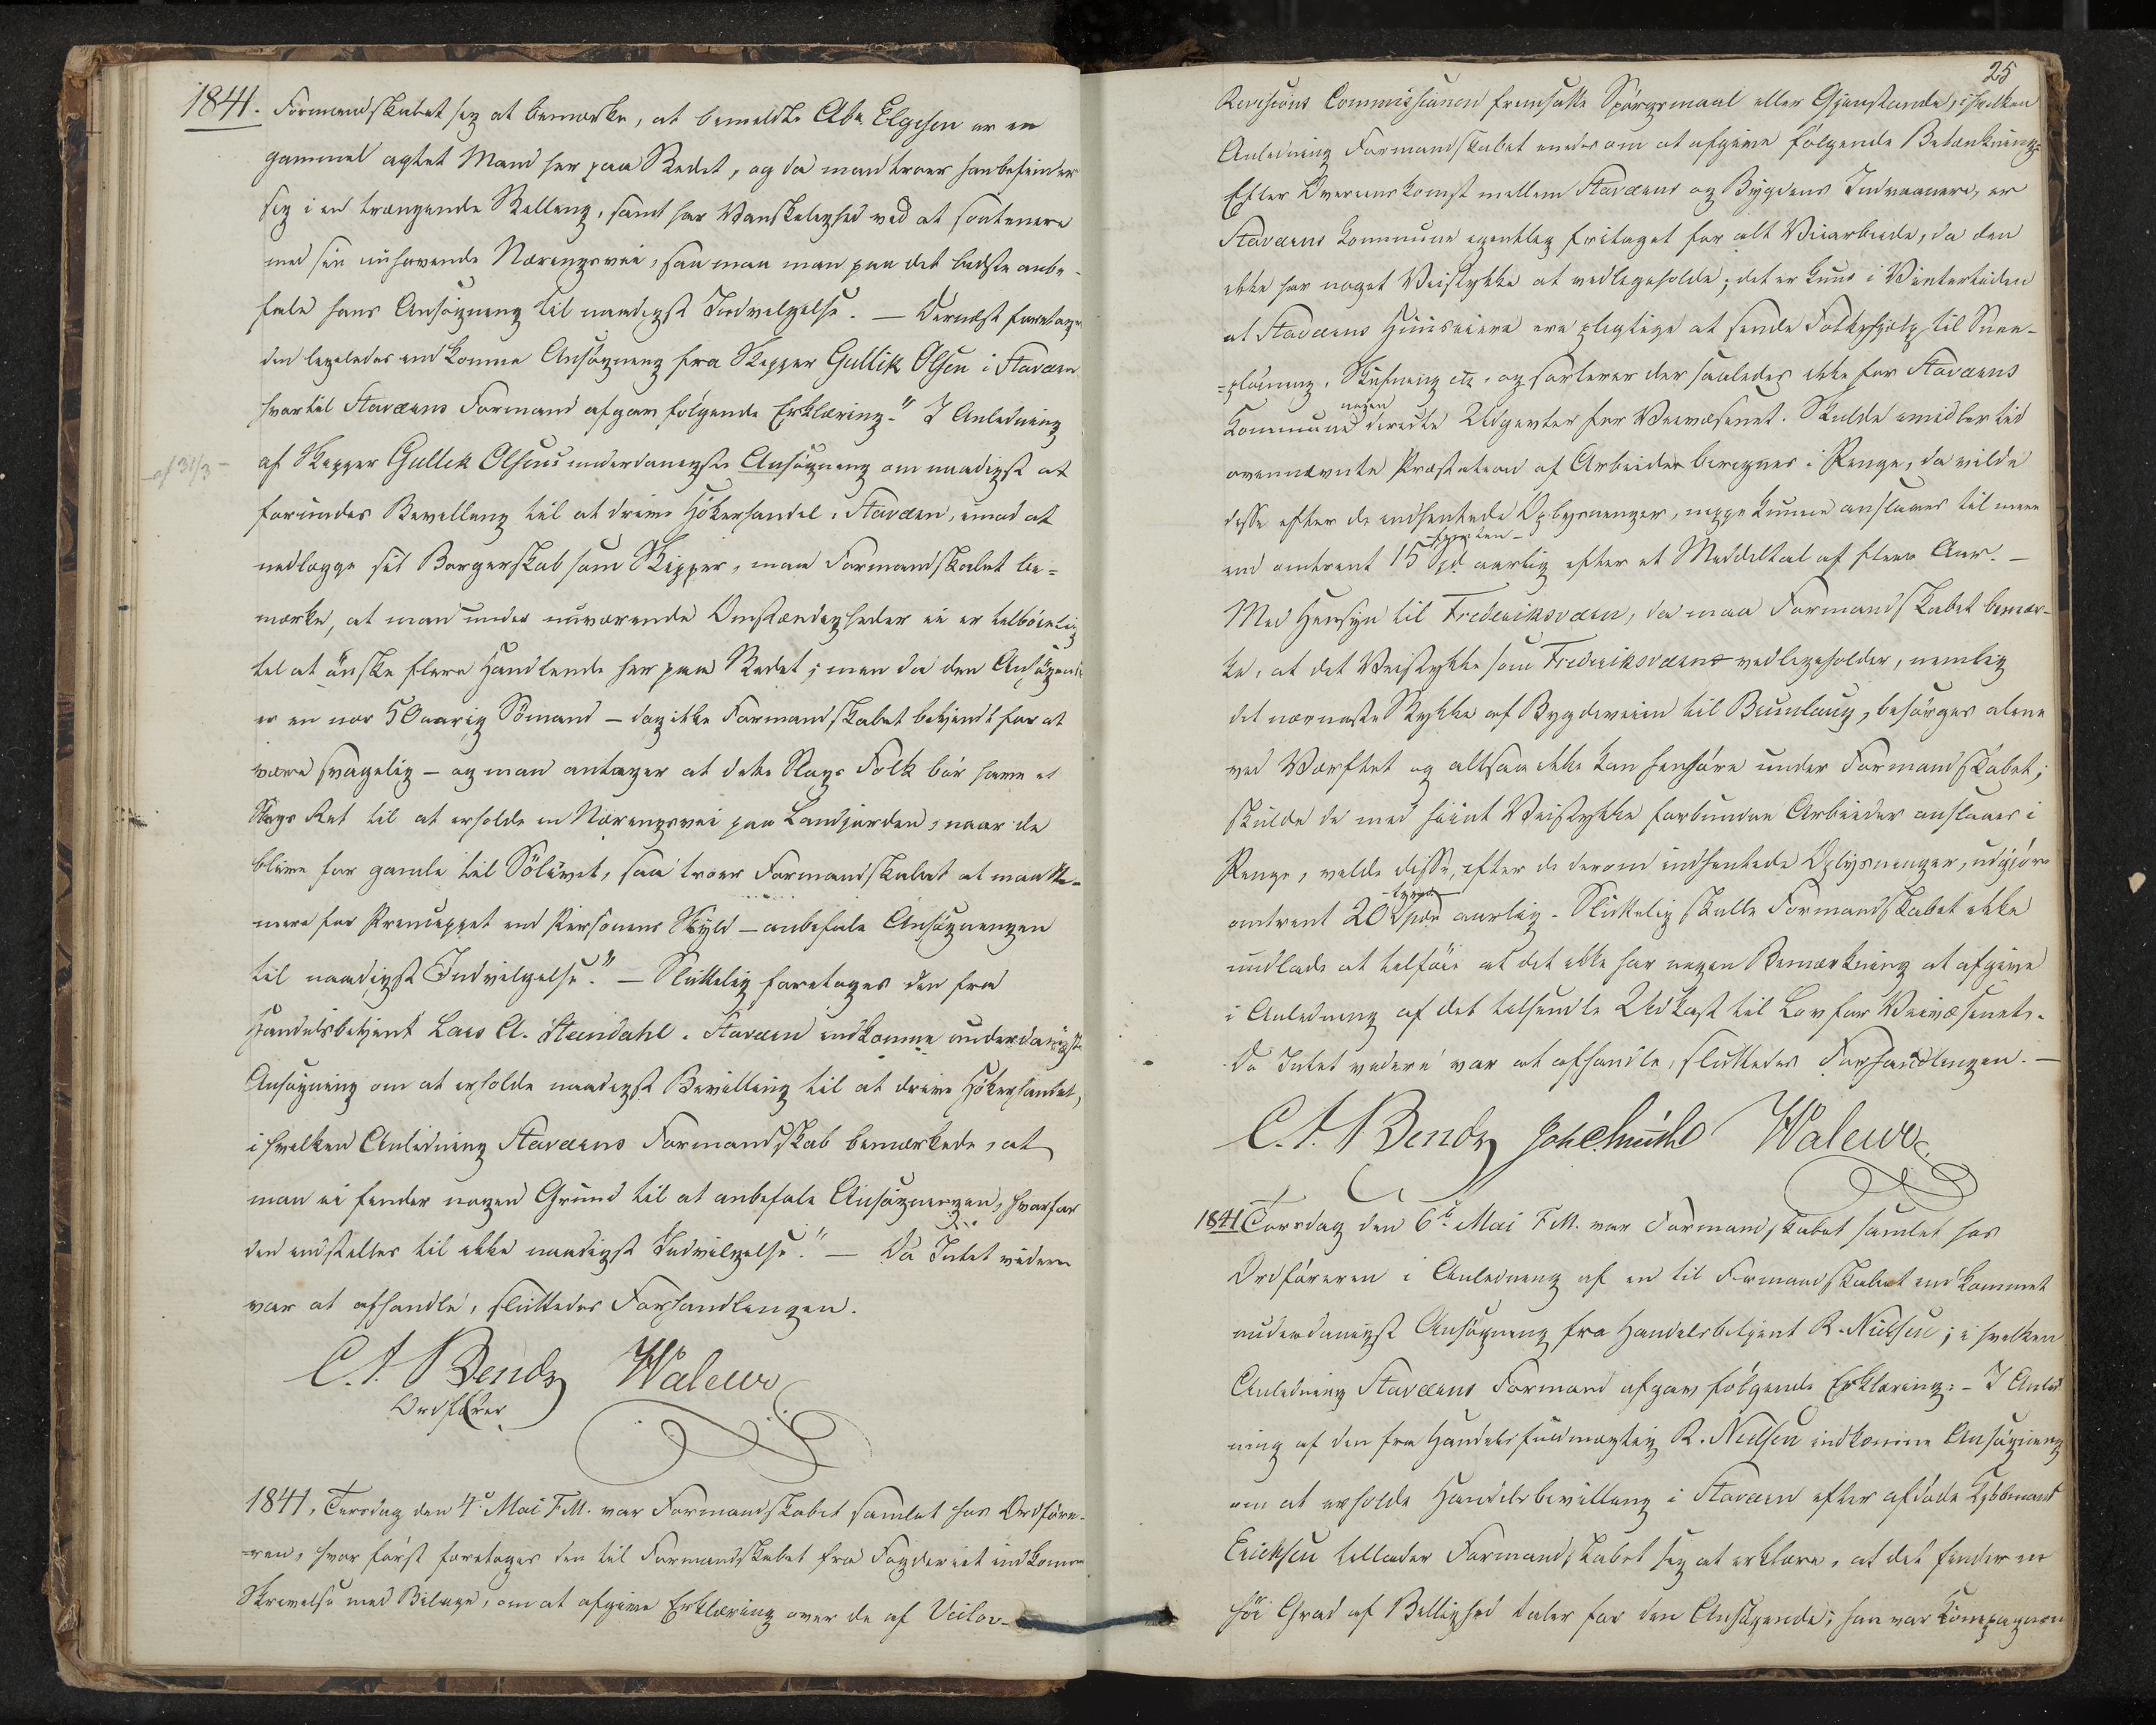 1841. Formandskabet sig at bemærke, at bemeldte Abr. Elgesen er en
gammel agtet Mand her paa Stedet, og da man troer han befinder
sig i en trængende Stilling, samt har Vanskelighed ved at soutenere
med sin nuhavende Næringsvei, saa maa man paa det bedste anbe-
fale hans Ansøgning til naadigst Indvilgelse. — Dernæst foretages
den ligeledes indkomne Ansøgning fra Skipper Gullik Olsen i Staværn
hvortil Staværns Formand afgav følgende Erklæring: "I Anledning
af 31/3 –
af Skipper Gullik Olsens underdanigste Ansøgning om naadigst at
forundes Bevilling til at drive Høkerhandel i Staværn, imod at
nedlægge sit Borgerskab som Skipper, maa Formandskabet be-
mærke, at man under nuværende Omstændigheder ei er tilbøielig
til at ønske flere Handlende her paa Stedet; men da den Ansøgende
er en nær 50aarig Sømand – dog ikke Formandskabet bekjendt for at
være svagelig – og man antager at dette Slags Folk bør have et
Slags Ret til at erholde en Næringsvei paa Landjorden, naar de
blive for gamle til Sølivet, saa troer Formandskabet at maatte –
mere for Princippet end Personens Skyld – anbefale Ansøgningen
til naadigst Indvilgelse." – Sluttelig foretages den fra
Handelsbetjent Lars A. Steindahl i Staværn indkomne underdanigste
Ansøgning om at erholde naadigst Bevilling til at drive Høkerhandel,
i hvilken Anledning Staværns Formandskab bemærkede, at
man ei finder nogen Grund til at anbefale Ansøgningen, hvorfor
den indstilles til ikke naadigst Indvilgelse." – Da Intet videre
var at afhandle, sluttedes Forhandlingen.
C. A. Bendz Walewo
Ordfører
1841, Tirsdag den 4de Mai F.M. var Formandskabet samlet hos Ordføre-
ren, hvor først foretages den til Formandskabet fra Fogderiet indkomne
Skrivelse med Bilage, om at afgive Erklæring over de af Veilov-
25
Revisions Commissionen fremsatte Spørgsmaal eller Gjenstande, i hvilken
Anledning Formandskabet enedes om at afgive følgende Betænkning:
Efter Overeenskomst mellem Staværns og Bygdens Indvaanere, er
Staværns Kommune egentlig fritaget for alt Veiarbeide, da den
ikke har noget Veistykke at vedligeholde; det er kuns i Vintertiden
at Staværns Huuseiere ere pligtige at sende Folkehjelp til Snee-
pløining, Skufning etc. og forlever der saaledes ikke for Staværns
nogen
Kommune directe Udgivter for Veivæsenet. Skulde imidlertid
ovennævnte Præstation af Arbeider beregnes i Penge, da vilde
disse efter de indhentede Oplysninger, neppe kunne anslaaes til mere
– femten –
end omtrent 15 Spd. aarlig efter et Middeltal af flere Aar. –
Med Hensyn til Frederiksværn, da maa Formandskabet bemær-
ke, at det Veistykke som Frederiksværns vedligeholder, nemlig
det nærmeste Stykke af Bygdeveien til Brunlaug, besørges alene
ved Værftet og altsaa ikke kan henhøre under Formandskabet;
skulde de med hiint Veistykke forbundne Arbeider anslaaes i
Penge, vilde disse, efter de derom indhentede Oplysninger, udgjøre
– tyve –
omtrent 20 Spdr aarlig. – Sluttelig skulle Formandskabet ikke
undlade at tilføie at det ikke har nogen Bemærkning at afgive
i Anledning af det tilsendte Udkast til Lov for Veivæsenet. –
Da Intet videre var at afhandle, sluttedes Forhandlingen. –
C. A. Bendz Walewo
1841 Torsdag den 6te Mai F.M. var Formandskabet samlet hos
Ordføreren i Anledning af en til Formandskabet indkommet
underdanigst Ansøgning fra Handelsbetjent R. Nielsen; i hvilken
Anledning Staværns Formand afgav følgende Erklæring: – I Anled
ning af den fra Handelsfuldmægtig R. Nielsen indkomne Ansøgning
om at erholde Handelsbevilling i Staværn efter afdøde Kjøbmand
Ericksen tillader Formandskabet sig at erklære, at det finder en
høi Grad af Billighed taler for den Ansøgende; han var Kompagnon